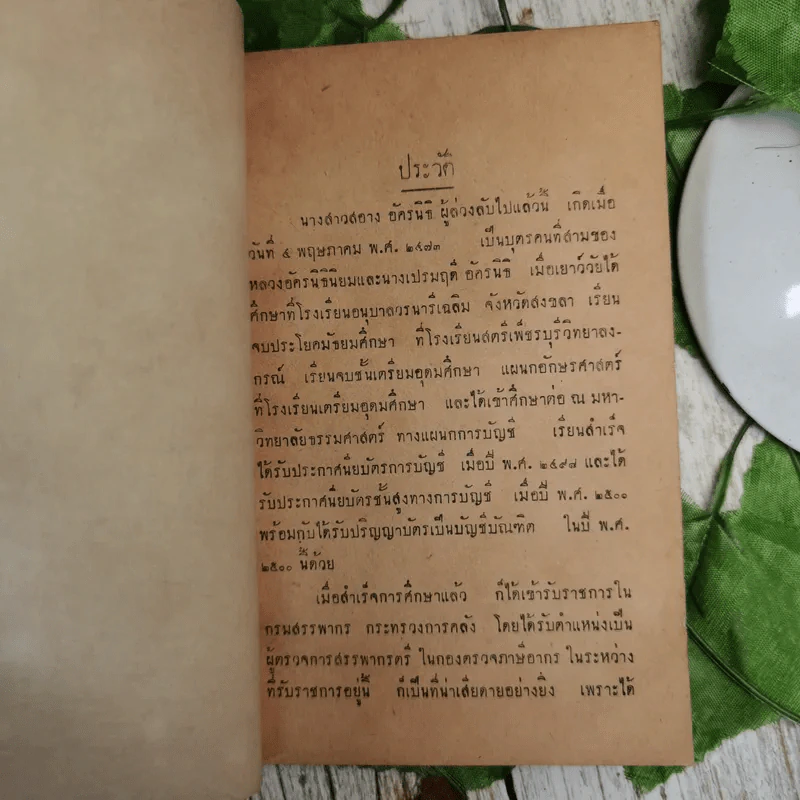 ประวัติ
นางสาวสอาง อัครนิธิ ผู้ล่วงลับไปแล้วนี้ เกิดเมื่อ
วันที่ ๕ พฤษภาคม พ.ศ. ๒๔๗๓ เป็นบุตรคนที่สามของ
หลวงอัครนิธินิยมและนางเปรมฤดี อัครนิธิ เมื่อเยาว์วัยได้
ศึกษาที่โรงเรียนอนุบาลวรนารีเฉลิม จังหวัดสงขลา เรียน
จบประโยคมัธยมศึกษา ที่โรงเรียนสตรีเพ็ชรบุรีวิทยาลง-
กรณ์ เรียนจบชั้นเตรียมอุดมศึกษา แผนกอักษรศาสตร์
ที่โรงเรียนเตรียมอุดมศึกษา และได้เข้าศึกษาต่อ ณ มหา-
วิทยาลัยธรรมศาสตร์ ทางแผนกการบัญชี เรียนสำเร็จ
ได้รับประกาศนียบัตรการบัญชี เมื่อปี พ.ศ. ๒๔๙๗ และได้
รับประกาศนียบัตรชั้นสูงทางการบัญชี เมื่อปี พ.ศ. ๒๕๐๐
พร้อมกับได้รับปริญญาบัตรเป็นบัญชีบัณฑิต ในปี พ.ศ.
๒๕๐๐ นี้ด้วย
เมื่อสำเร็จการศึกษาแล้ว ก็ได้เข้ารับราชการใน
กรมสรรพากร กระทรวงการคลัง โดยได้รับตำแหน่งเป็น
ผู้ตรวจการสรรพากรตรี ในกองตรวจภาษีอากร ในระหว่าง
ที่รับราชการอยู่นี้ ก็เป็นที่น่าเสียดายอย่างยิ่ง เพราะได้